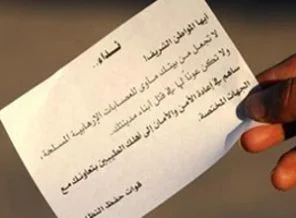 نداء..
أيها المواطن الشريف!
لا تجعل من بيتك مأوى للعصابات الإرهابية المسلحة،
ولا تكن عوناً لها في قتل أبناء مدينتك.
ساهم في إعادة الأمن والأمان إلى أهلك الطيبين بتعاونك مع
الجهات المختصة.
قوات حفظ النظام